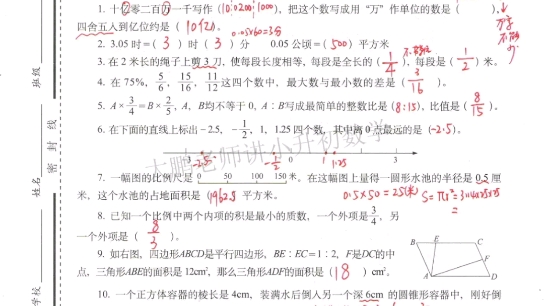 1. 十亿零二百万一千写作(1002001000),把这个数写成用“万”作单位的数是( ),
四舍五入到亿位约是(10亿)。
0.05×60=3分
2. 3.05时=(3)时(3)分 0.05公顷=(500)平方米
3. 在2米长的绳子上剪3刀,使每段长度相等,每段是全长的(1/4),每段是(1/2)米。
4. 在75%,5/6,15/16,11/12这四个数中,最大数与最小数的差是(3/16)。
5. A×3/4=B×2/5,A、B均不等于0,A:B写成最简单的整数比是(8:15),比值是(8/15)。
6. 在下面的直线上标出-2.5,-1/2,1,1.25四个数,其中离0点最远的是(-2.5)。
大鹏老师讲小升初数学
-3 -2.5 -1/2 0 1 1.25 3
7. 一幅图的比例尺是 0 50 100 150米。在这幅图上量得一圆形水池的半径是0.5厘
米,这个水池的占地面积是(1962.5)平方米。
0.5×50=25(米) S=πr²=3.14×25×25
=
8. 已知一个比例中两个内项的积是最小的质数,一个外项是3/4,另
一个外项是(8/3)。
9. 如右图,四边形ABCD是平行四边形,BE:EC=1:2,F是DC的中
点,三角形ABE的面积是12cm²,那么三角形ADF的面积是(18)cm²。
B E C
F
A D
10. 一个正方体容器的棱长是4cm,装满水后倒入另一个深6cm的圆锥形容器中,刚好倒
班级
姓名
学校
密封线